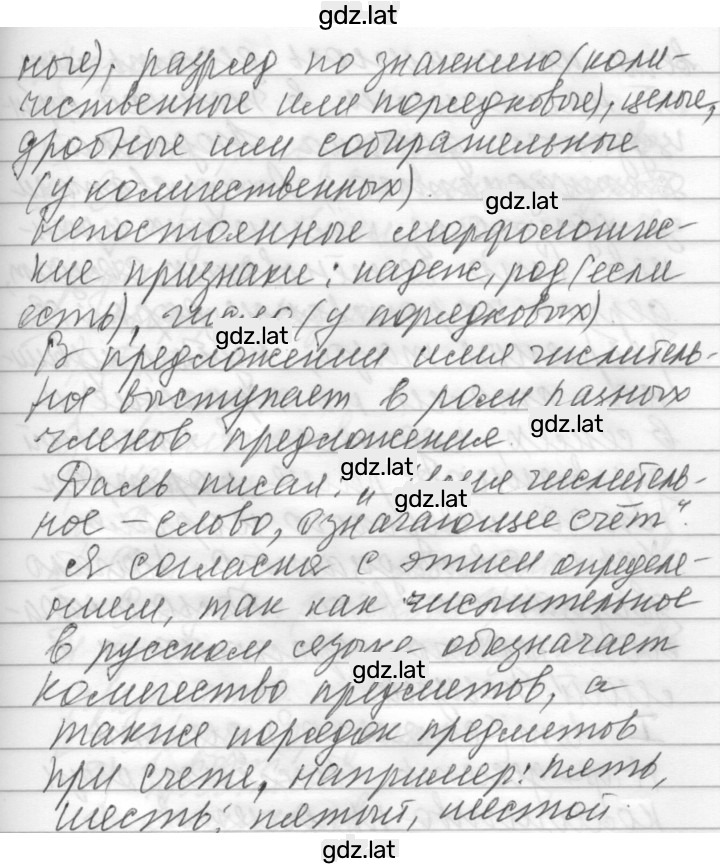 gdz.lat
ные), разряд по значению (коли-
чественные или порядковые), целые,
дробные или собирательные
(у количественных).
gdz.lat
Непостоянные морфологичес-
кие признаки: падеж, род (если
есть), число (у порядковых).
gdz.lat
В предложении имя числитель-
ное выступает в роли разных
членов предложения.
gdz.lat
Даль писал: „Имя числитель-
gdz.lat
gdz.lat
ное – слово, означающее счёт“.
Я согласна с этим определе-
нием, так как числительное
в русском языке обозначает
gdz.lat
количество предметов, а
также порядок предметов
при счете, например: пять,
шесть; пятый, шестой.
gdz.lat